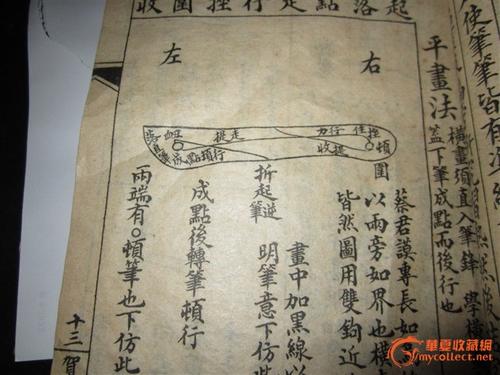 起落點走行挫圍收
使筆筆皆有
平畫法
橫畫須直入筆鋒 學橫
蓋下筆成點而後行也
右
左
頓
圍
收
提走
成點頓行
蔡君謨專長如
以兩旁如界也橫
皆然圖用雙鉤近
畫中加黑線以
明筆意下仿此
折起逆
筆
成點後轉筆頓行
兩端有○頓筆也下仿此
十三 賀
華夏收藏網
mycollect.net